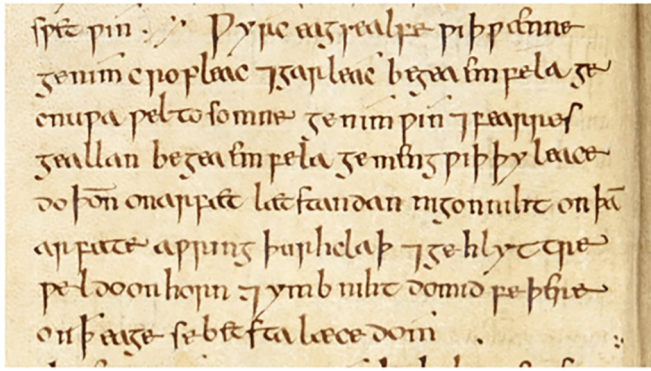 sƿet ƿin . Ƿyrc eagsealfe ƿiþ ƿænne
genim cropleac ⁊ garleac begea emfela ge
cnuƿa ƿel to somne genim ƿin ⁊ fearres
geallan begea emfela gemeng ƿiþ þy leace
do þoñ on arfæt læt standan nigon niht on þā
arfæte aƿring þurh claþ ⁊ gehlyttre
ƿel do on horn ⁊ ymb niht do mid feþre
on ꝥ eage se betsta læcedom .